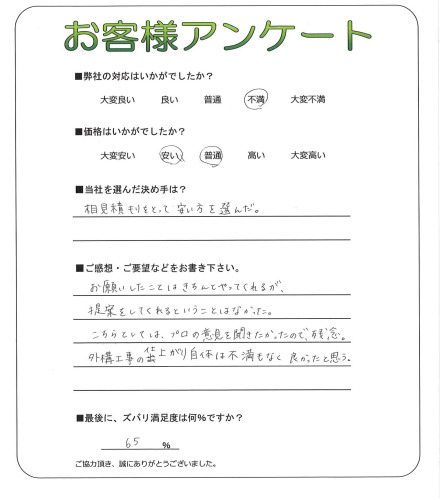 お客様アンケート
■弊社の対応はいかがでしたか？
大変良い 良い 普通 不満 大変不満
■価格はいかがでしたか？
大変安い 安い 普通 高い 大変高い
■当社を選んだ決め手は？
相見積もりをとって安い方を選んだ。
■ご感想・ご要望などをお書き下さい。
お願いしたことはきちんとやってくれるが、
提案をしてくれるということはなかった。
こちらとしては、プロの意見を聞きたかったので、残念。
外構工事の仕上がり自体は不満もなく良かったと思う。
■最後に、ズバリ満足度は何％ですか？
65 ％
ご協力頂き、誠にありがとうございました。